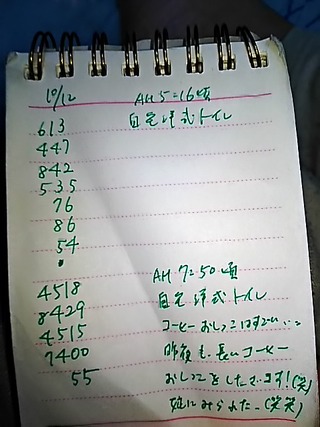 10/12 AM 5=16頃
613 自宅洋式トイレ
447
842
535
76
86
54
AM 7=50頃
4518 自宅洋式トイレ
8429
4515 コーヒーおしっこはすごい…
7400 昨夜も長いコーヒー
55 おしっこをしたでいます!(笑)
にみられた…(笑笑)